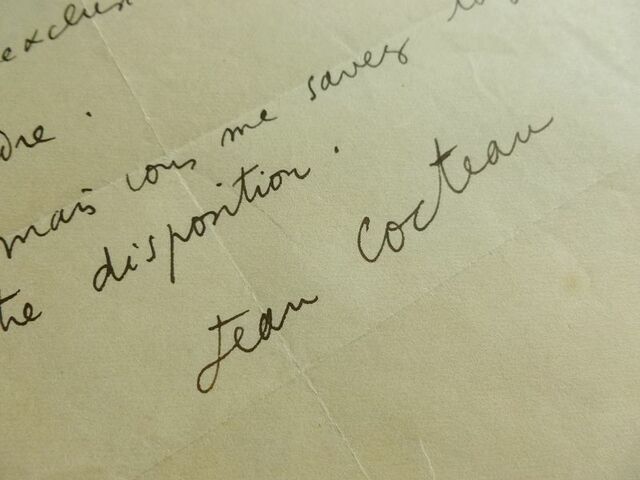 exclus
dre.
mais vous me savez
tre disposition.
Jean Cocteau